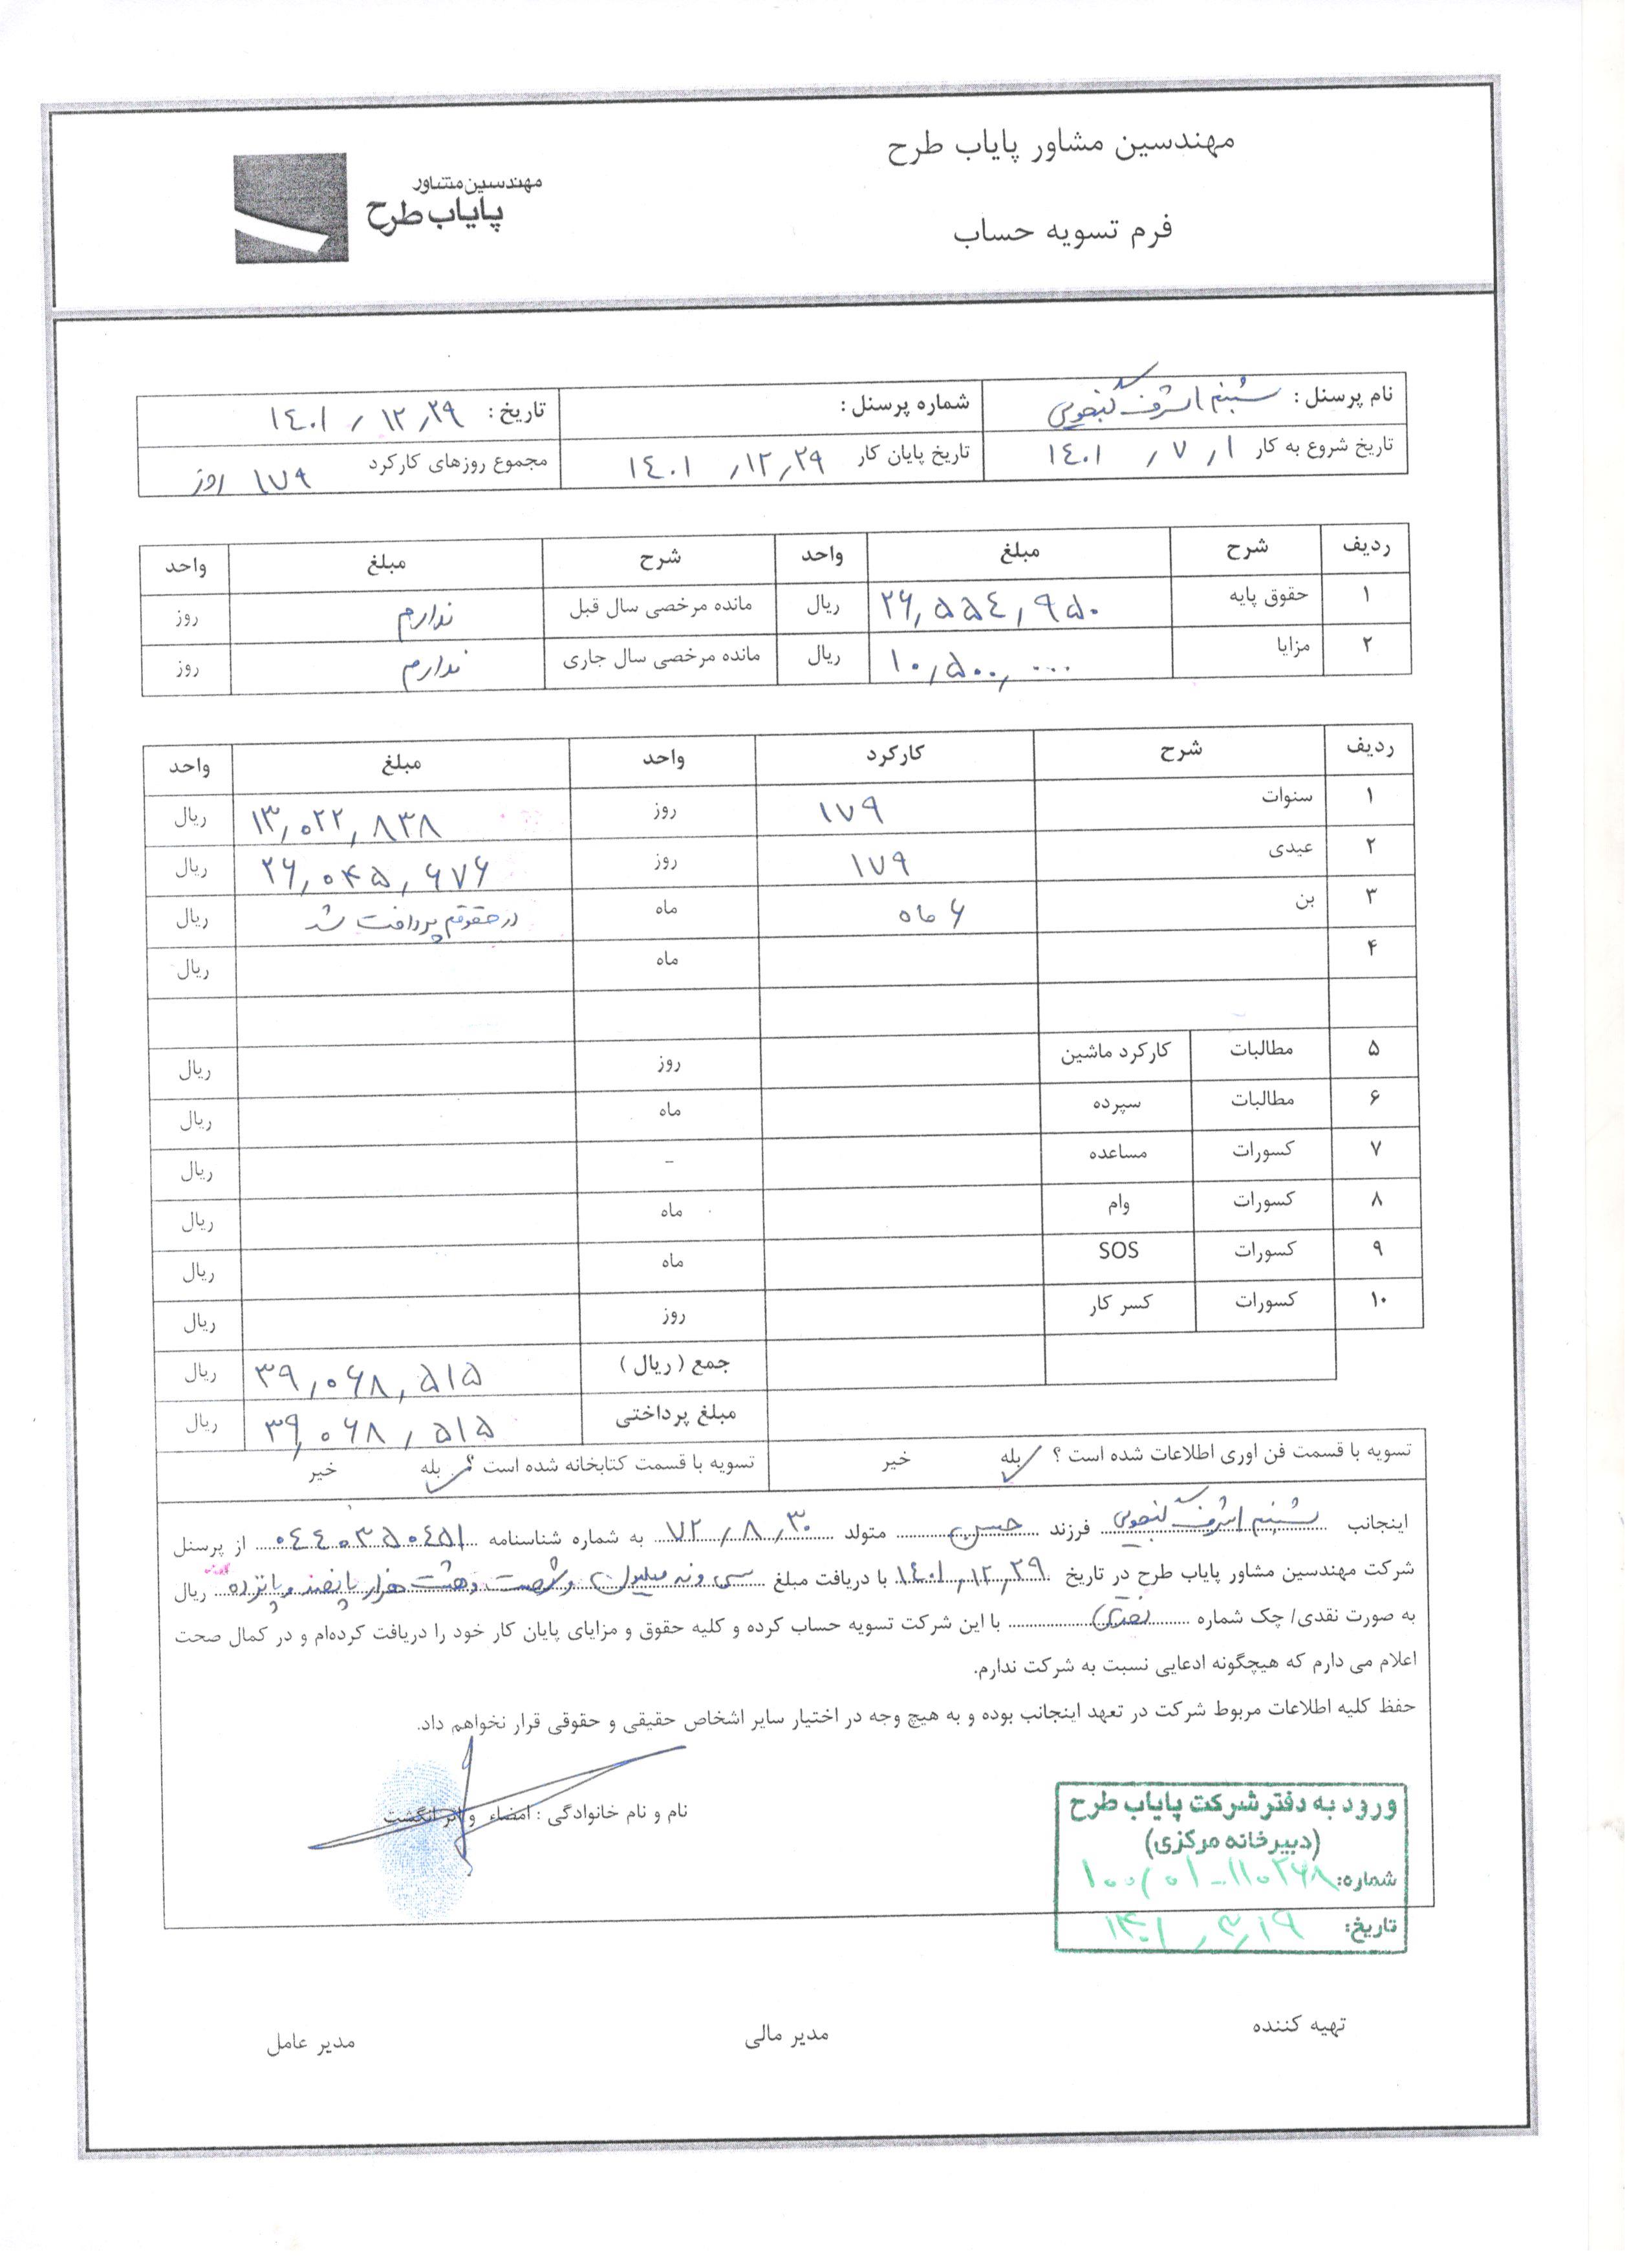 مهندسین مشاور پایاب طرح
مهندسین مشاور
پایاب طرح
فرم تسویه حساب
نام پرسنل : شبنم اشرف گنجویی شماره پرسنل : تاریخ : ۱۴۰۱ / ۱۲ / ۲۹
تاریخ شروع به کار ۱۴۰۱ / ۷ / ۱ تاریخ پایان کار ۱۴۰۱ / ۱۲ / ۲۹ مجموع روزهای کارکرد ۱۷۹ روز
ردیف شرح مبلغ واحد شرح مبلغ واحد
۱ حقوق پایه ۲۶,۵۵۴,۹۵۰ ریال مانده مرخصی سال قبل ندارم روز
۲ مزایا ۱۰,۵۰۰,۰۰۰ ریال مانده مرخصی سال جاری ندارم روز
ردیف شرح کارکرد واحد مبلغ واحد
۱ سنوات ۱۷۹ روز ۱۳,۰۲۲,۸۳۸ ریال
۲ عیدی ۱۷۹ روز ۲۶,۰۴۵,۶۷۶ ریال
۳ بن ۶ ماه ماه در حقوقم پرداخت شد ریال
۴ ماه ریال
۵ مطالبات کارکرد ماشین روز ریال
۶ مطالبات سپرده ماه ریال
۷ کسورات مساعده - ریال
۸ کسورات وام ماه ریال
۹ کسورات SOS ماه ریال
۱۰ کسورات کسر کار روز ریال
جمع ( ریال ) ۳۹,۰۶۸,۵۱۵ ریال
مبلغ پرداختی ۳۹,۰۶۸,۵۱۵ ریال
تسویه با قسمت فن اوری اطلاعات شده است ؟ بله ✓ خیر تسویه با قسمت کتابخانه شده است ؟ بله ✓ خیر
اینجانب شبنم اشرف گنجویی فرزند حسن متولد ۷۲ / ۸ / ۳۰ به شماره شناسنامه ۰۴۴۰۳۵۰۴۵۱ از پرسنل
شرکت مهندسین مشاور پایاب طرح در تاریخ ۱۴۰۱ / ۱۲ / ۲۹ با دریافت مبلغ سی و نه میلیون و شصت و هشت هزار پانصد و پانزده ریال
به صورت نقدی/ چک شماره نقدی با این شرکت تسویه حساب کرده و کلیه حقوق و مزایای پایان کار خود را دریافت کرده‌ام و در کمال صحت
اعلام می دارم که هیچگونه ادعایی نسبت به شرکت ندارم.
حفظ کلیه اطلاعات مربوط شرکت در تعهد اینجانب بوده و به هیچ وجه در اختیار سایر اشخاص حقیقی و حقوقی قرار نخواهم داد.
نام و نام خانوادگی : امضاء و اثر انگشت
ورود به دفتر شرکت پایاب طرح
(دبیرخانه مرکزی)
شماره: ۱۰۰/۰۱-۱۱۰۲۶۸
تاریخ:
تهیه کننده مدیر مالی مدیر عامل